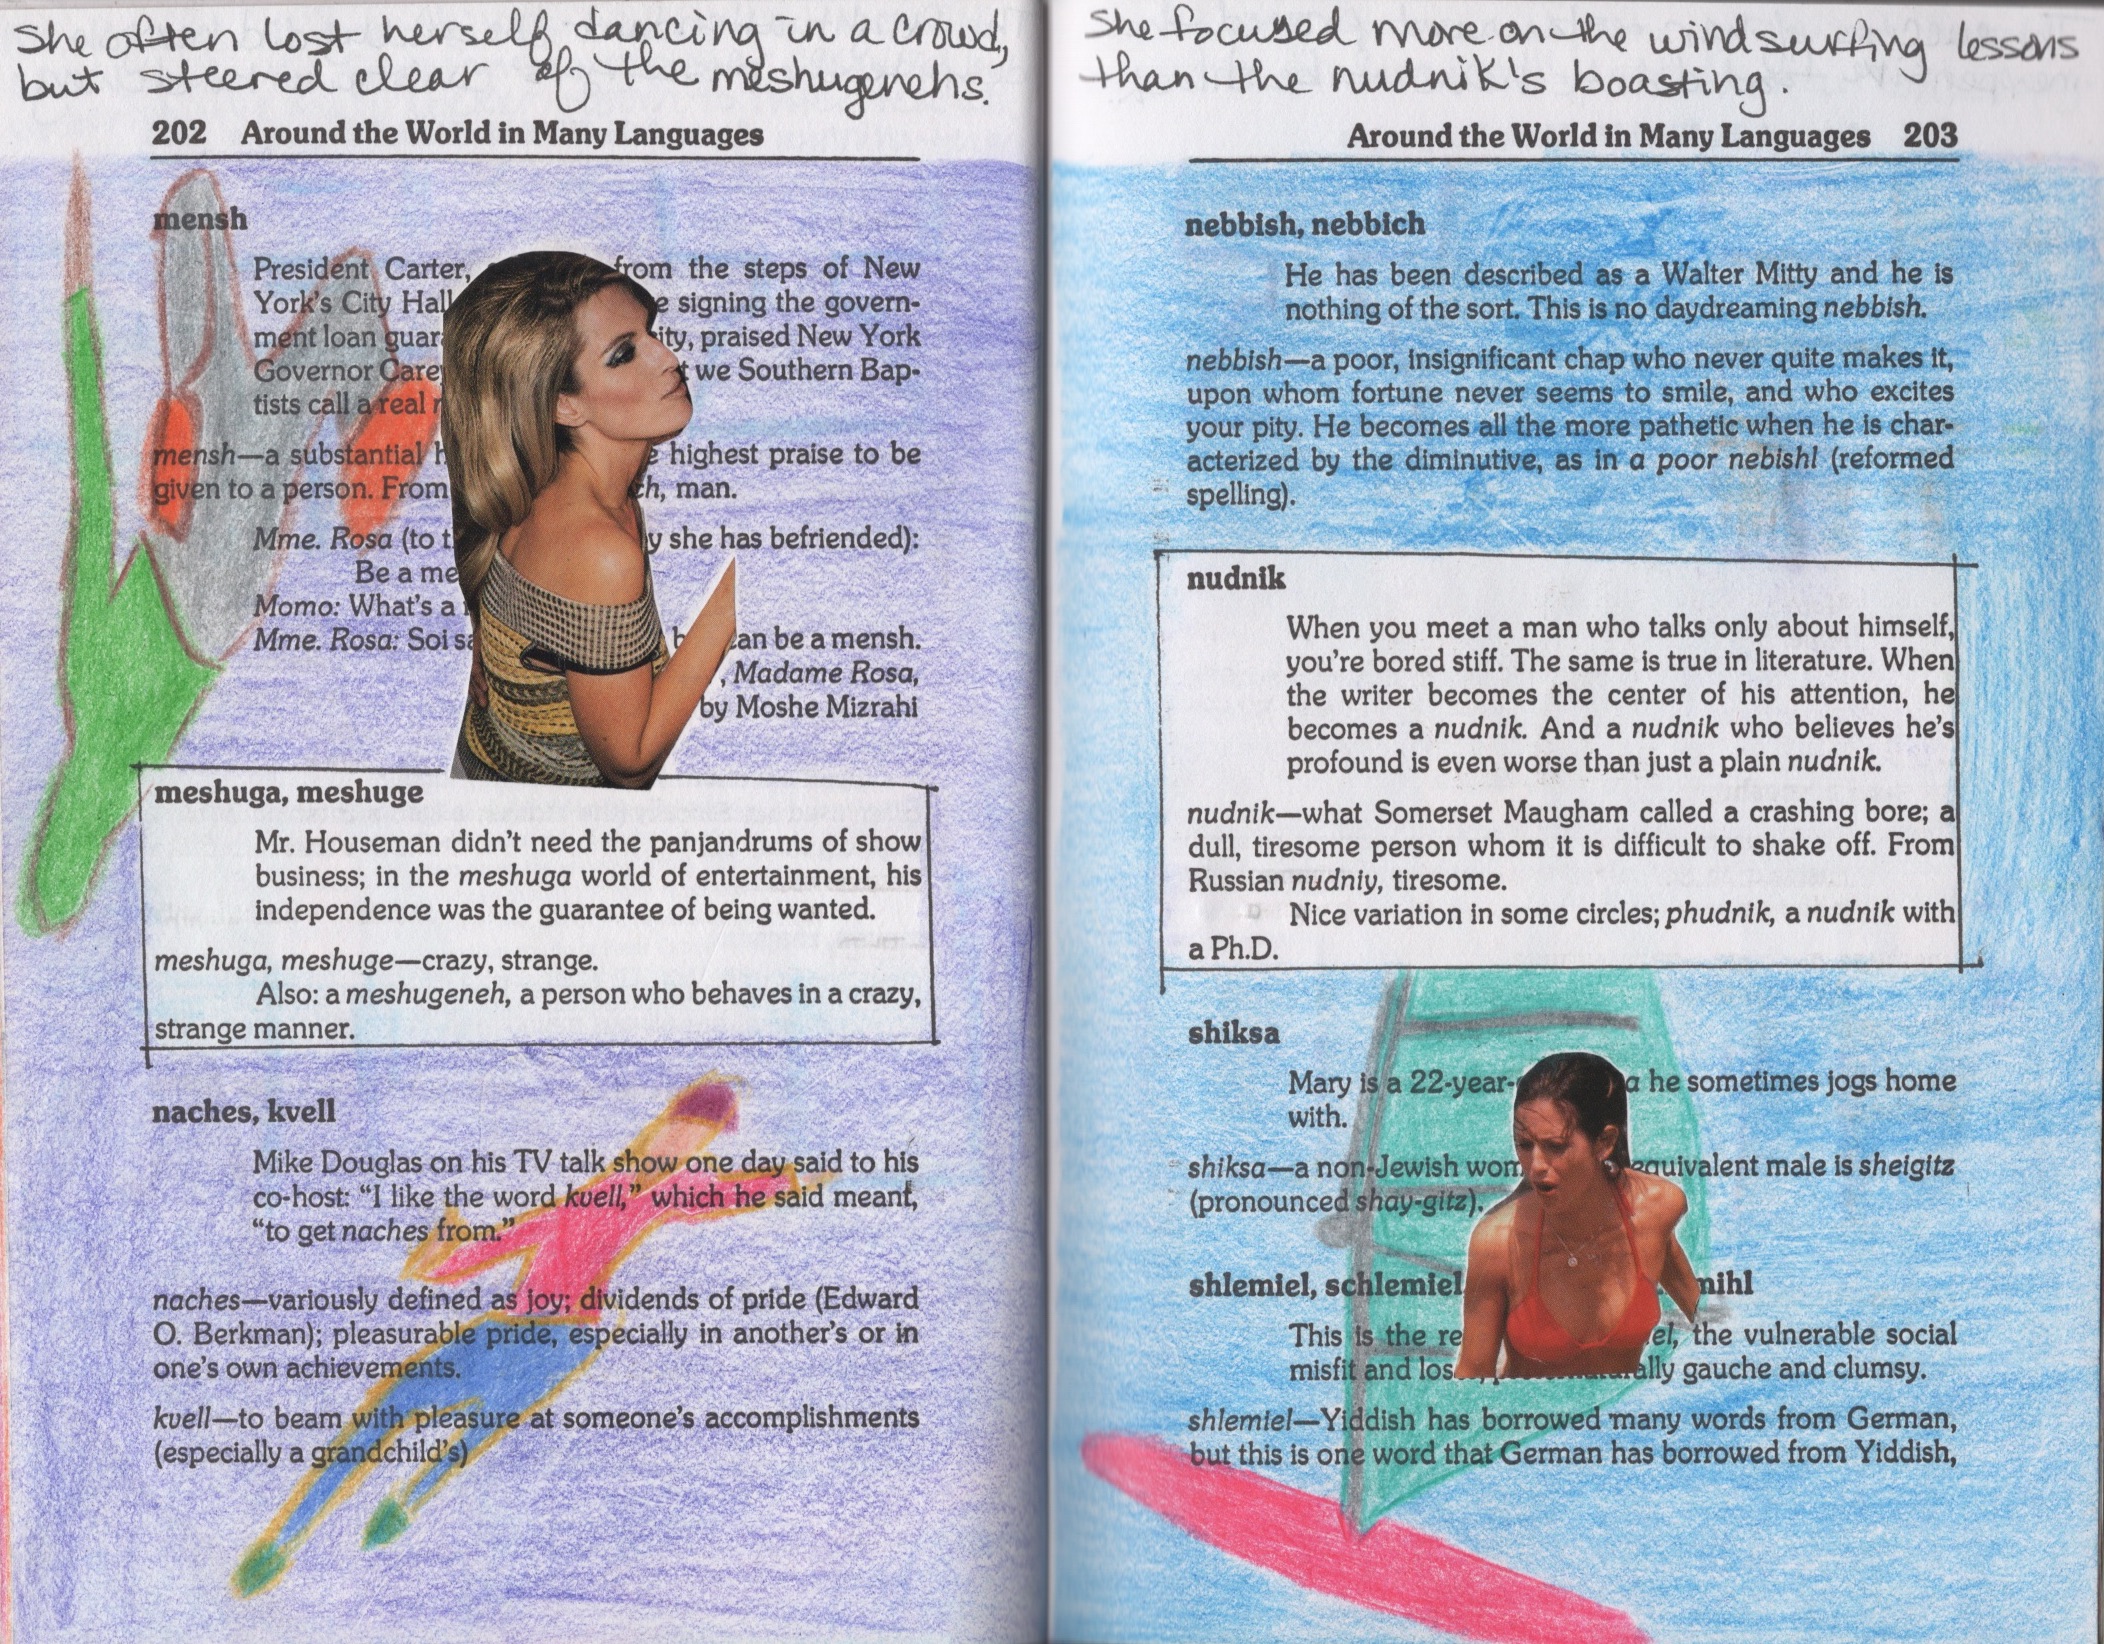 She often lost herself dancing in a crowd,
but steered clear of the meshugenehs.
202 Around the World in Many Languages
mensh
President Carter, from the steps of New
York's City Hall signing the govern-
ment loan guar ity, praised New York
Governor Carey we Southern Bap-
tists call a real
mensh—a substantial highest praise to be
given to a person. From ch, man.
Mme. Rosa (to t y she has befriended):
Be a me
Momo: What's a
Mme. Rosa: Soi sa can be a mensh.
, Madame Rosa,
by Moshe Mizrahi
meshuga, meshuge
Mr. Houseman didn't need the panjandrums of show
business; in the meshuga world of entertainment, his
independence was the guarantee of being wanted.
meshuga, meshuge—crazy, strange.
Also: a meshugeneh, a person who behaves in a crazy,
strange manner.
naches, kvell
Mike Douglas on his TV talk show one day said to his
co-host: “I like the word kvell,” which he said meant,
“to get naches from.”
naches—variously defined as joy; dividends of pride (Edward
O. Berkman); pleasurable pride, especially in another's or in
one's own achievements.
kvell—to beam with pleasure at someone's accomplishments
(especially a grandchild's)
She focused more on the windsurfing lessons
than the nudnik's boasting.
Around the World in Many Languages 203
nebbish, nebbich
He has been described as a Walter Mitty and he is
nothing of the sort. This is no daydreaming nebbish.
nebbish—a poor, insignificant chap who never quite makes it,
upon whom fortune never seems to smile, and who excites
your pity. He becomes all the more pathetic when he is char-
acterized by the diminutive, as in a poor nebishl (reformed
spelling).
nudnik
When you meet a man who talks only about himself,
you're bored stiff. The same is true in literature. When
the writer becomes the center of his attention, he
becomes a nudnik. And a nudnik who believes he's
profound is even worse than just a plain nudnik.
nudnik—what Somerset Maugham called a crashing bore; a
dull, tiresome person whom it is difficult to shake off. From
Russian nudniy, tiresome.
Nice variation in some circles; phudnik, a nudnik with
a Ph.D.
shiksa
Mary is a 22-year- a he sometimes jogs home
with.
shiksa—a non-Jewish wom equivalent male is sheigitz
(pronounced shay-gitz).
shlemiel, schlemiel mihl
This is the re el, the vulnerable social
misfit and los ally gauche and clumsy.
shlemiel—Yiddish has borrowed many words from German,
but this is one word that German has borrowed from Yiddish,